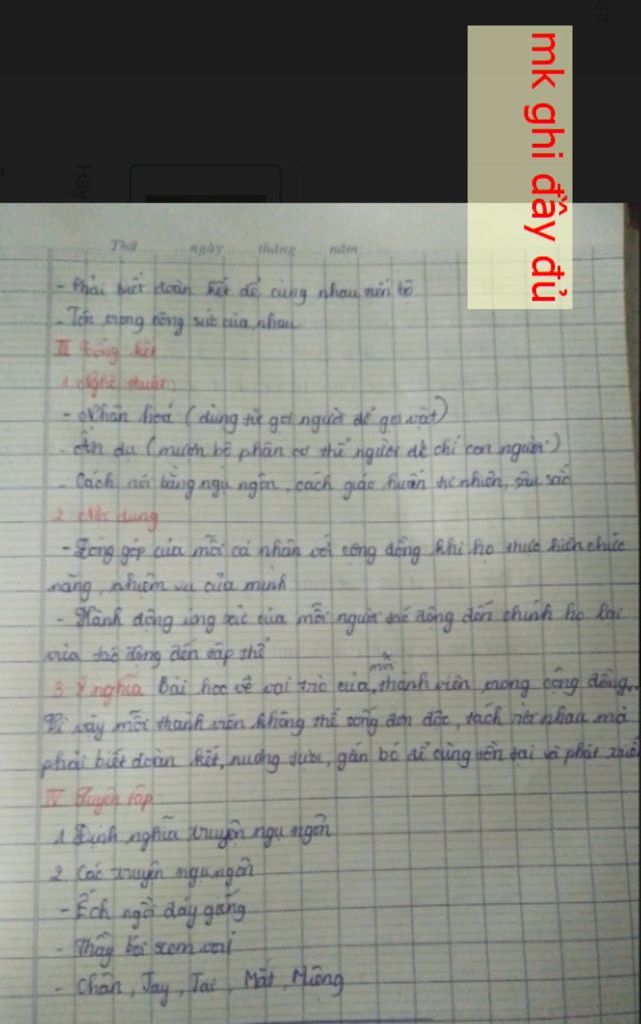 mk ghi đầy đủ
Thứ ngày tháng năm
- Phải biết đoàn kết để cùng nhau tiến bộ
- Tôn trọng công sức của nhau
III Tổng kết
1. Nghệ thuật:
- Nhân hoá (dùng từ gọi người để gọi vật)
- Ẩn dụ (mượn bộ phận cơ thể người để chỉ con người)
- Cách nói bằng ngụ ngôn, cách giáo huấn tự nhiên, sâu sắc
2. Nội dung
- Đóng góp của mỗi cá nhân với cộng đồng khi họ thực hiện chức
năng, nhiệm vụ của mình
- Hành động ứng xử của mỗi người tác động đến chính họ lại
vừa tác động đến tập thể
3. Ý nghĩa Bài học về vai trò của mỗi thành viên trong cộng đồng.
Vì vậy mỗi thành viên không thể sống đơn độc, tách rời nhau mà
phải biết đoàn kết, nương tựa, gắn bó để cùng tồn tại và phát triển
IV Luyện tập:
1. Định nghĩa truyện ngụ ngôn
2. Các truyện ngụ ngôn
- Ếch ngồi đáy giếng
- Thầy bói xem voi
- Chân, Tay, Tai, Mắt, Miệng